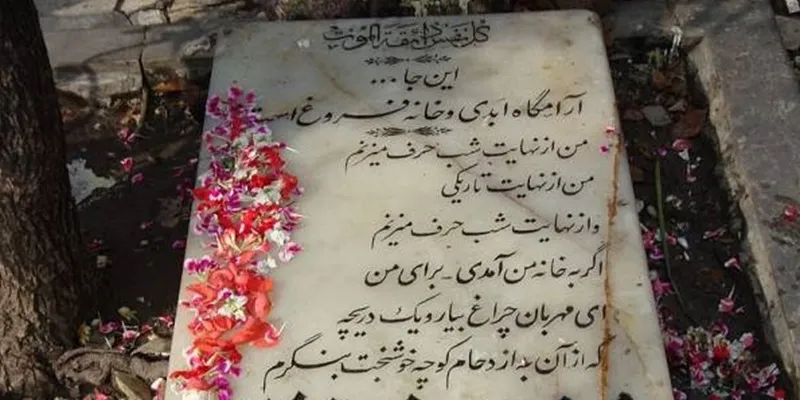 كل نفس ذائقة الموت
این جا ...
آرامگاه ابدی و خانه فروغ است
من از نهایت شب حرف میزنم
من از نهایت تاریکی
و از نهایت شب حرف میزنم
اگر به خانه من آمدی - برای من
ای مهربان چراغ بیار و یک دریچه
که از آن به ازدحام کوچه خوشبخت بنگرم